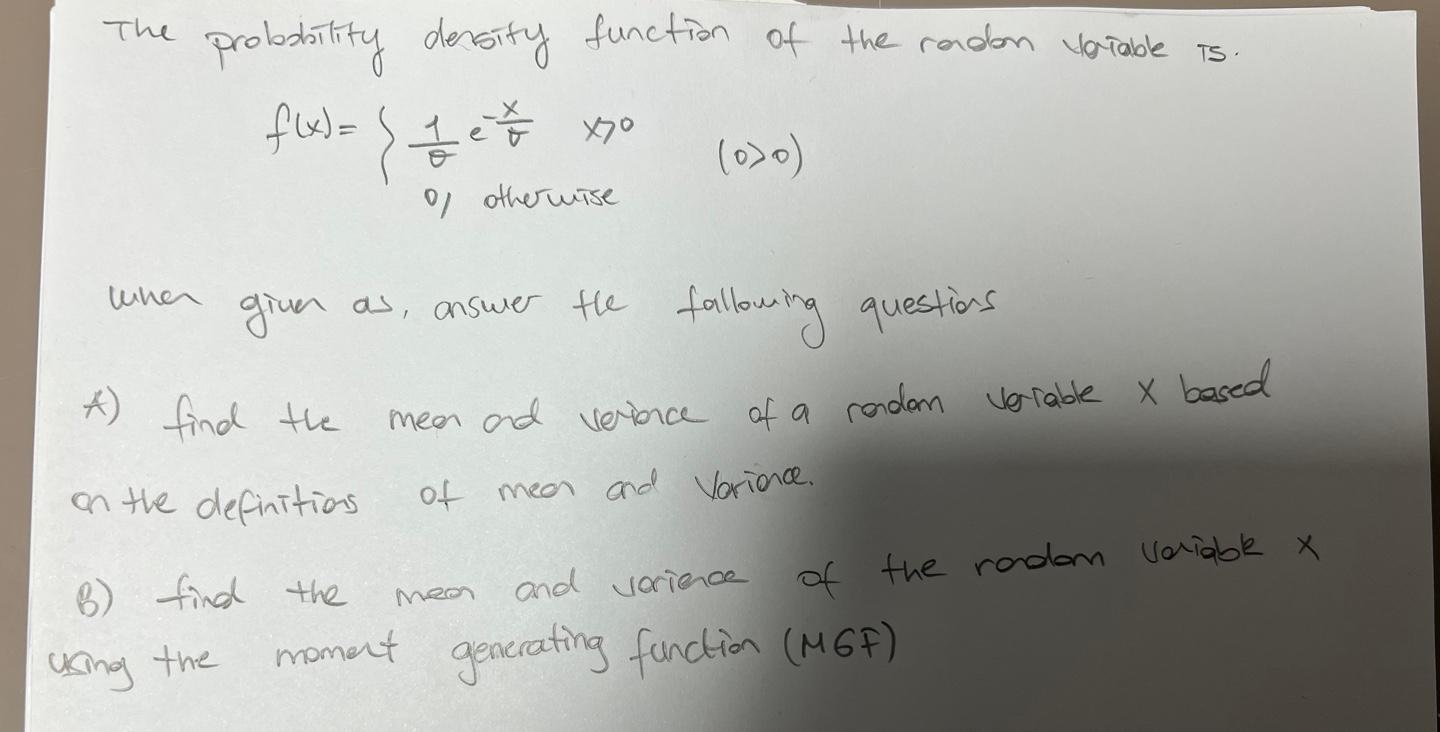 The probability density function of the random variable is.
f(x)= { 1/θ e^-x/θ x>0
(θ>0)
0, otherwise
when given as, answer the following questions
A) find the mean and variance of a random variable X based
on the definitions of mean and variance.
B) find the mean and varience of the random variable X
using the moment generating function (MGF)